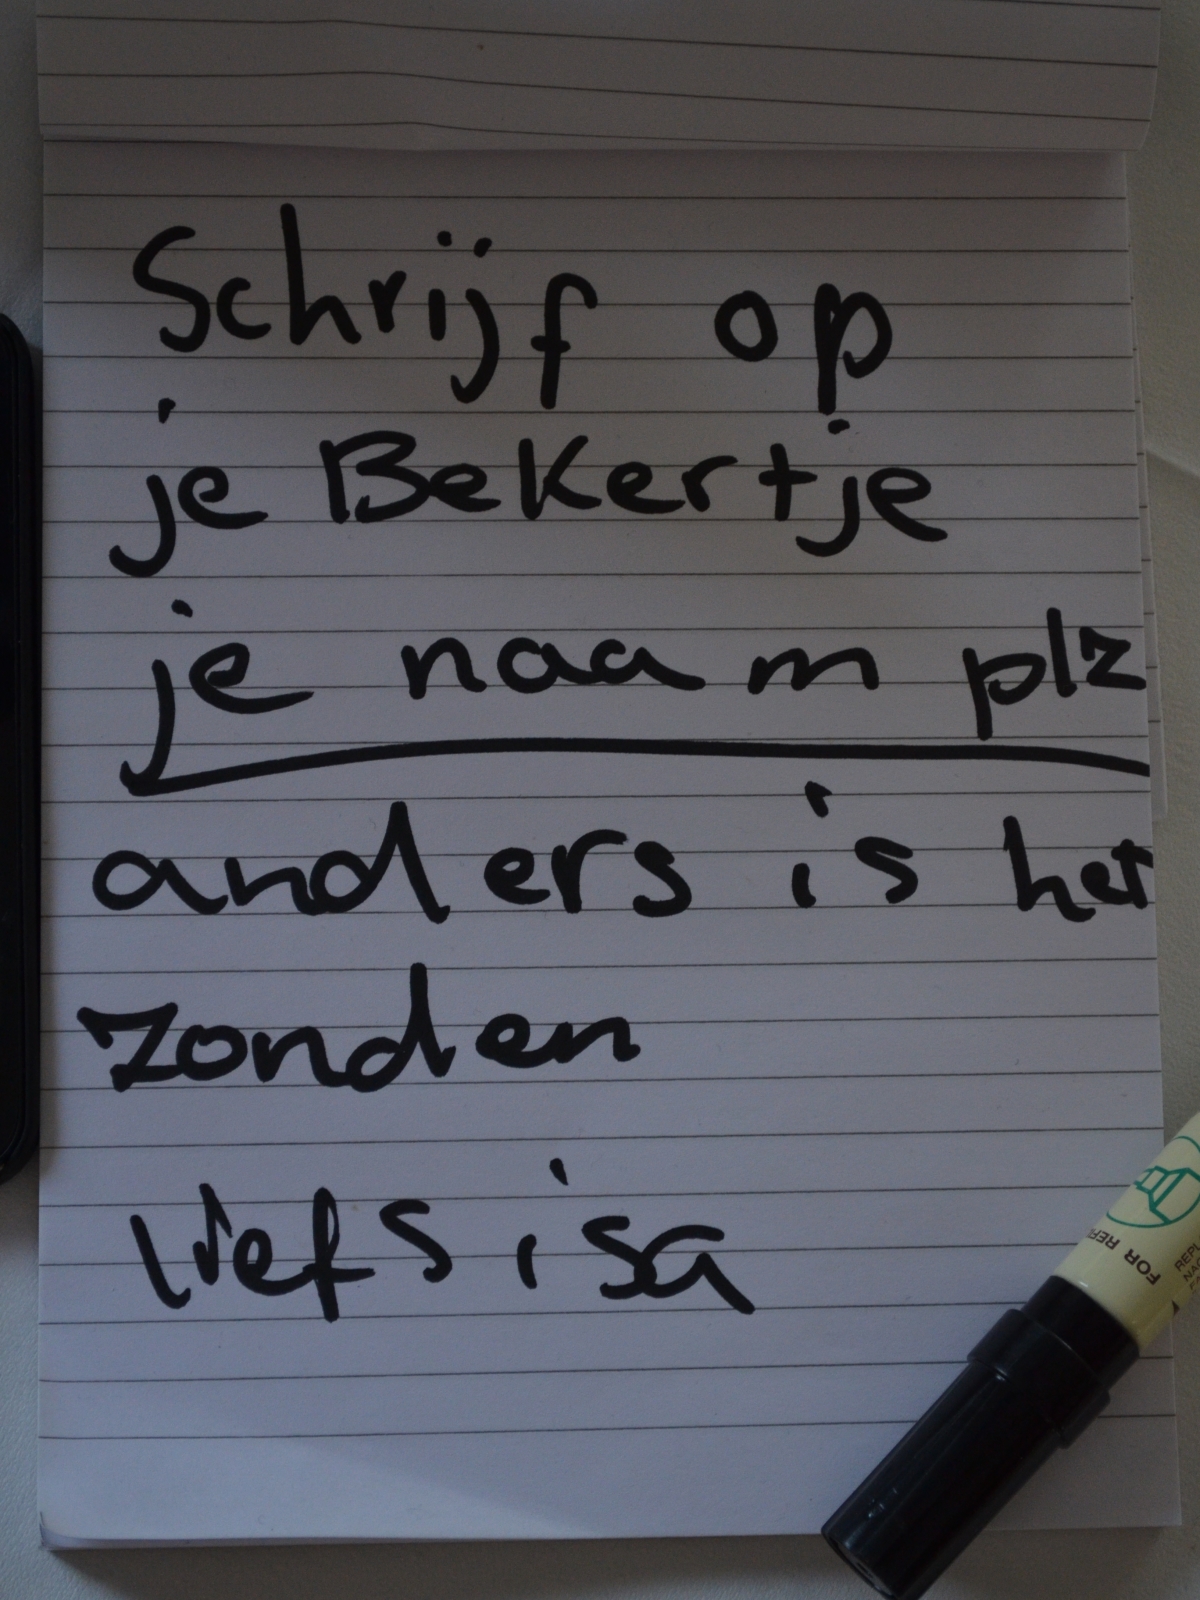 Schrijf op
je Bekertje
je naam plz
anders is het
zonden
liefs isa
FOR REF
REPL